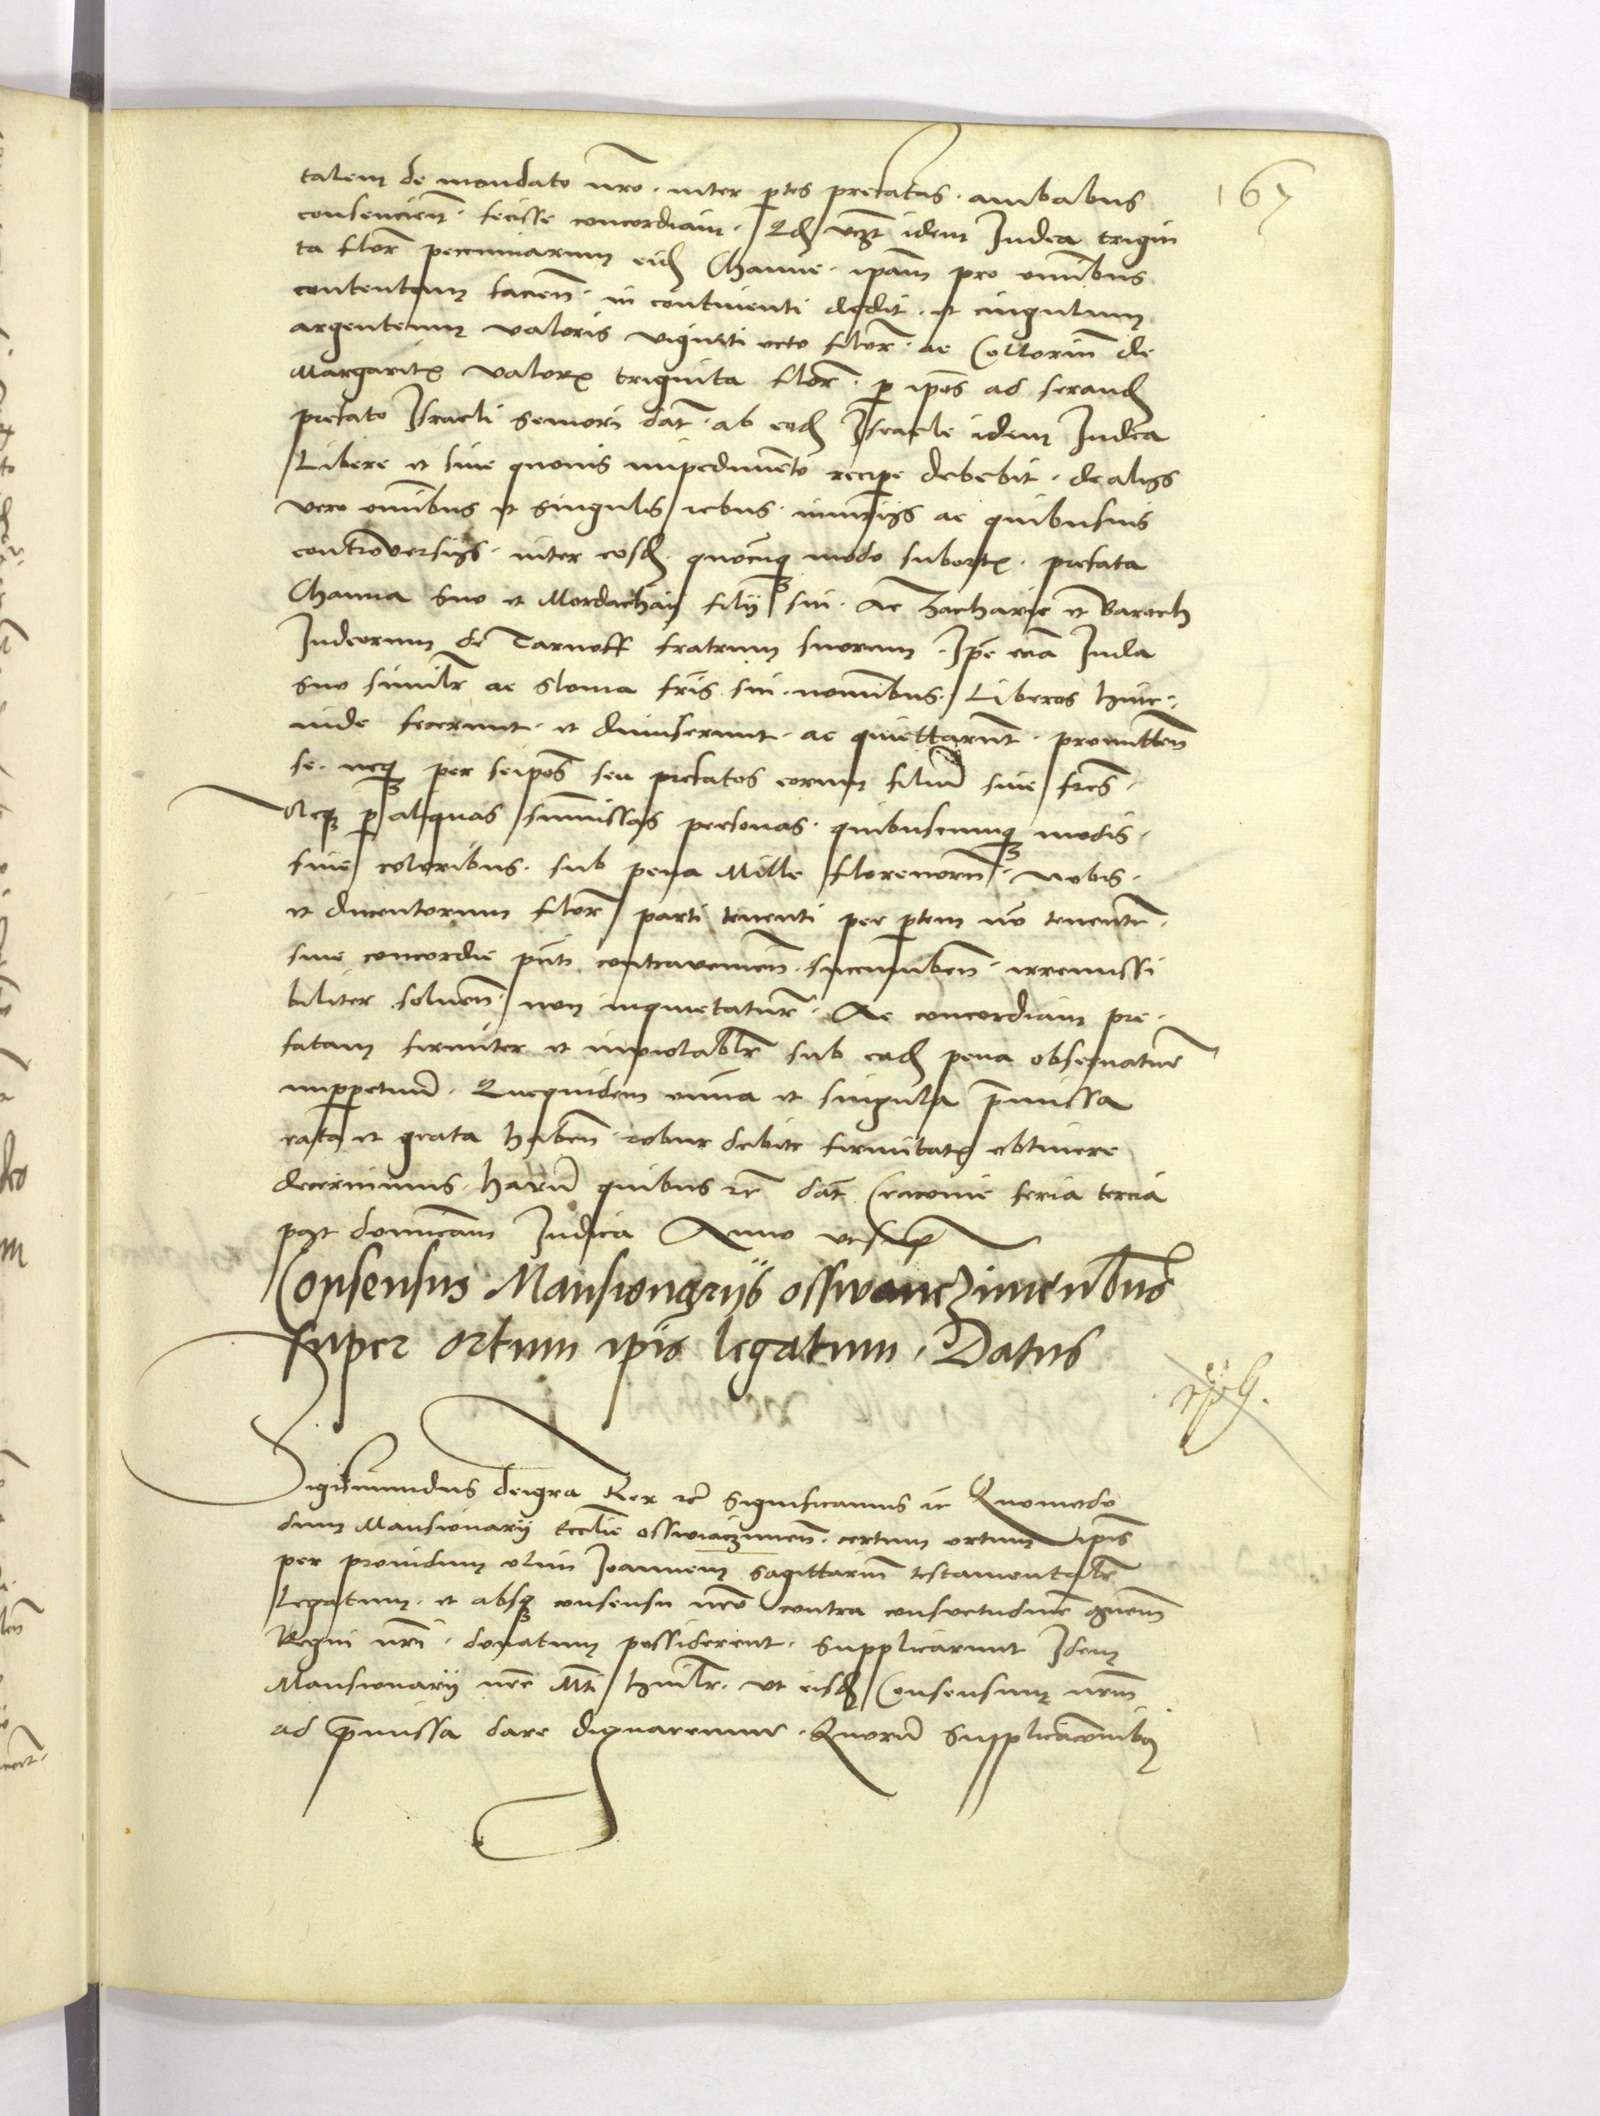 167
talem de mandato nro. inter ptes prefatas. ambabus
consencien. fecisse concordiam. Qd vczt idem Judea trigin
ta flor pecuniarum eid Channe. ipam pro omibus
contentam facien. in continenti dedit. et cingulum
argenteum valoris viginti octo flor. ac Collorim de
Margaritis valoris triginta flor. p ipos ad serand
prefato Israeli seniori dat. ab eod Israele idem Judea
Libere et sine quouis impedimento recipe debebit. de alijs
vero omibus et singulis rebus. iniurijs ac quibusuis
controversijs. inter eosd. quocunq modo subortis. prefata
Channa suo et Mordachaij filij sui. Ac Zacharie et Baroch
Judeorum de Tarnoff fratrum suorum. Ipe eciam Juda
suo similr ac Sloma fris sui. nominibus. Liberos hinc.
inde fecerunt. et dimiserunt. ac quiettarunt. promitten
se. neq per seipos seu prefatos eorum filium siue fres.
Neq p aliquas summissas personas. quibuscunq modis.
siue coloribus. sub pena Mille florenorum. nobis.
et ducentorum flor parti tenenti per ptem no tenentem.
siue concordie pnti contravenien. succumben. irremissi
biliter soluen. non inquietaturos. Ac concordiam pre.
fatam firmiter et inviolablr sub ead pena obseruatur
imperpetuum. Que quidem omnia et singula pmissa
rata et grata haben. robur debite firmitatis obtinere
decernimus. harum quibus etc dat Cracovie feria tercia
post domicam Judica Anno ut supra
Consensus Mansionarijs osswanczimensibus
super ortum ipis legatum. Datus
Sigismundus dei gra Rex etc Significamus etc Quomodo
dum Mansionarij Ecclie osswiaczimen. certum ortum ipis
per prouidum olim Joannem Sagittarium testamentalr
Legatum. et absq consensu nro contra consuetudinem gnem
Regni nri. donatum possiderent. Supplicarunt Idem
Mansionarij nre Mti humilr. ut eisd Consensum nrm
ad pmissa dare dignaremur. Quorum Supplicacionibus